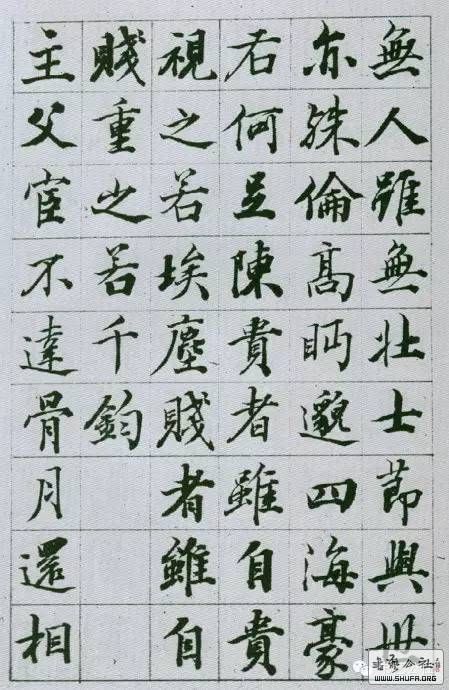 無人雖無壯士節與世
亦殊倫高眄邈四海豪
右何足陳貴者雖自貴
視之若埃塵賤者雖自
賤重之若千鈞
主父宦不達骨月還相
书艺公社
WWW.SHUFA.ORG